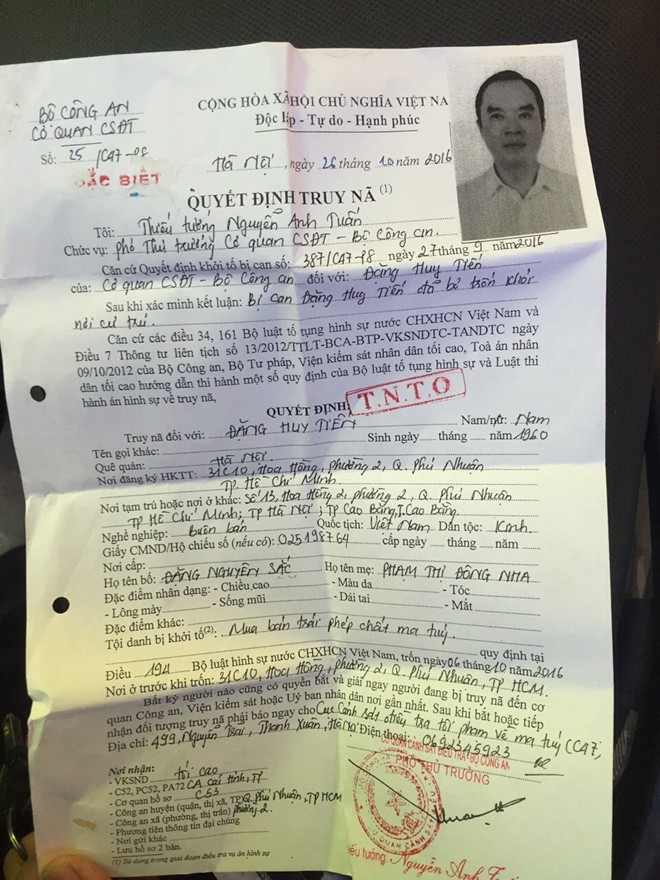 BỘ CÔNG AN
CƠ QUAN CSĐT
Số: 25 /C47-P8
ĐẶC BIỆT
CỘNG HÒA XÃ HỘI CHỦ NGHĨA VIỆT NA
Độc lập - Tự do - Hạnh phúc
Hà Nội, ngày 26 tháng 10 năm 2016
QUYẾT ĐỊNH TRUY NÃ (1)
Tôi: Thiếu tướng Nguyễn Anh Tuấn
Chức vụ: Phó Thủ trưởng Cơ quan CSĐT - Bộ Công an.
Căn cứ Quyết định khởi tố bị can số: 387/C47-P8 ngày 27 tháng 9 năm 2016
của: Cơ quan CSĐT - Bộ Công an đối với: Đặng Huy Tiến
Sau khi xác minh kết luận: Bị can Đặng Huy Tiến đã bỏ trốn khỏi
nơi cư trú.
Căn cứ các điều 34, 161 Bộ luật tố tụng hình sự nước CHXHCN Việt Nam và
Điều 7 Thông tư liên tịch số 13/2012/TTLT-BCA-BTP-VKSNDTC-TANDTC ngày
09/10/2012 của Bộ Công an, Bộ Tư pháp, Viện kiểm sát nhân dân tối cao, Toà án nhân
dân tối cao hướng dẫn thi hành một số quy định của Bộ luật tố tụng hình sự và Luật thi
hành án hình sự về truy nã,
QUYẾT ĐỊNH:
T.N.T.O
Truy nã đối với: ĐẶNG HUY TIẾN Nam/nữ: Nam
Tên gọi khác: Sinh ngày tháng năm 1960
Quê quán: Hà Nội.
Nơi đăng ký HKTT: 31C10, Hoa Hồng, phường 2, Q. Phú Nhuận
TP. Hồ Chí Minh.
Nơi tạm trú hoặc nơi ở khác: Số 13, Hoa Hồng 2, phường 2, Q. Phú Nhuận
TP Hồ Chí Minh; TP Hà Nội; TP Cao Bằng, T. Cao Bằng.
Nghề nghiệp: buôn bán Quốc tịch: Việt Nam Dân tộc: Kinh.
Giấy CMND/Hộ chiếu số (nếu có): 025198764 cấp ngày tháng năm
Nơi cấp:
Họ tên bố: ĐẶNG NGUYÊN SẮC Họ tên mẹ: PHẠM THỊ ĐÔNG NHA
Đặc điểm nhân dạng: - Chiều cao - Màu da - Tóc
- Lông mày - Sống mũi - Dái tai - Mắt
Đặc điểm khác:
Tội danh bị khởi tố(2): Mua bán trái phép chất ma tuý. quy định tại
Điều 194 Bộ luật hình sự nước CHXHCN Việt Nam, trốn ngày 06 tháng 10 năm 2016
Nơi ở trước khi trốn: 31C10, Hoa Hồng, phường 2, Q. Phú Nhuận, TP HCM.
Bất kỳ người nào cũng có quyền bắt và giải ngay người đang bị truy nã đến cơ
quan Công an, Viện kiểm sát hoặc Uỷ ban nhân dân nơi gần nhất. Sau khi bắt hoặc tiếp
nhận đối tượng truy nã phải báo ngay cho Cục Cảnh sát điều tra tội phạm về ma tuý (C47,
Địa chỉ: 499, Nguyễn Trãi, Thanh Xuân, Hà Nội Điện thoại: 0692345923
CƠ QUAN CẢNH SÁT ĐIỀU TRA - BỘ CÔNG AN
PHÓ THỦ TRƯỞNG
Nơi nhận:
- VKSND tối cao
- C52, PC52, PA72 CA các tỉnh, TP
- Cơ quan hồ sơ C53
- Công an huyện (quận, thị xã, TP) Q. Phú Nhuận, TP HCM
- Công an xã (phường, thị trấn) phường 2.
- Phương tiện thông tin đại chúng
- Nơi gửi khác
- Lưu hồ sơ 2 bản.
(1) Sử dụng trong giai đoạn điều tra vụ án hình sự
iếu tướng. Nguyễn Anh